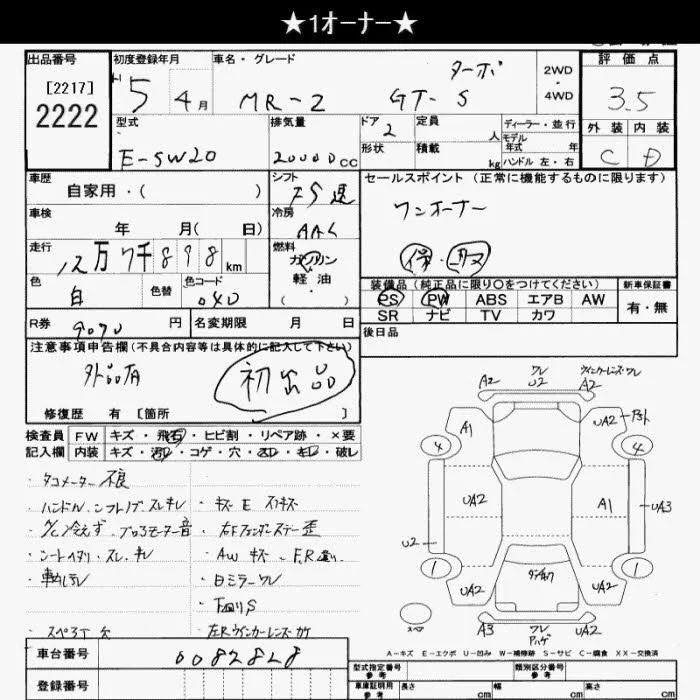 ★1オーナー★
出品番号
[2217]
2222
初度登録年月
5年 4月
車名・グレード
ターボ
MR-2 GT-S
2WD
・
4WD
評価点
3.5
外装 内装
C D
型式
E-SW20
排気量
2000 cc
ドア 2
形状
定員 人
積載 kg
ディーラー・並行
モデル年式 年
ハンドル 左・右
車歴
自家用・( )
シフト
F5速
セールスポイント (正常に機能するものに限ります)
ワンオーナー
車検
年 月( 日)
冷房
AAC
走行
12万7千898km
燃料
ガソリン
軽油
・( )
色
白
色替
色コード
040
装備品(純正品に限り○をつけてください)
PS PW ABS エアB AW
SR ナビ TV カワ
新車保証書
有・無
R券
9070円
名変期限 月 日
後日品
注意事項申告欄(不具合内容等は具体的に記入して下さい)
外品有
初出品
修復歴 有 [箇所 ]
検査員記入欄
FW キズ・飛石・ヒビ割・リペア跡・×要
内装 キズ・汚れ・コゲ・穴・スレ・キレ・破レ
・タコメーター不良
・ハンドル、シフトノブ、スレキレ
・A/C冷えず、ブロアモーター音
・シートヘタリ・スレ、キレ
・スペアT欠
・キズ E
・右Fフェンダーステー歪
・AW キズ F,R違い
・ドミラーワレ
・下回りS
・左Rウィンカーレンズカケ
A2
ワレ
U2
ウィンカーレンズワレ
A2
A1
UA2
4
4
UA2
A1
UA3
U2
1
1
UA2
UA2
スペア
A3
ワレ
UA2
A-キズ E-エクボ U-凹み W-補修跡 S-サビ C-腐食 XX-交換済
車台番号
0082828
登録番号
型式指定番号
参考
類別区分番号
参考
車庫証明用
参考
長さ cm
幅 cm
高さ cm